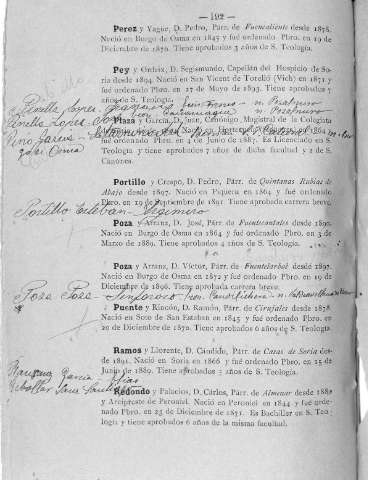 — 192 —
Perez y Yagüe, D. Pedro, Párr. de Fuencaliente desde 1878.
Nació en Burgo de Osma en 1845 y fué ordenado Pbro. en 19 de
Diciembre de 1870. Tiene aprobados 3 años de S. Teología.
Pey y Ordeix, D. Segismundo, Capellán del Hospicio de So-
ria desde 1894. Nació en San Vicente de Torelló (Vich) en 1871 y
fué ordenado Pbro. en 27 de Mayo de 1893. Tiene aprobados 7
años de S. Teología.
Plaza y García, D. Juan, Canónigo Magistral de la Colegiata
1864
fué ordenado Pbro. en 4 de Junio de 1887. Es Licenciado en S.
Teología y tiene aprobados 7 años de dicha facultad y 2 de S.
Cánones.
Portillo y Crespo, D. Pedro, Párr. de Quintanas Rubias de
Abajo desde 1897. Nació en Piquera en 1864 y fué ordenado
Pbro. en 19 de Septiembre de 1891. Tiene aprobada carrera breve.
Portillo Esteban
Poza y Arranz, D. José, Párr. de Fuentecantales desde 1890.
Nació en Burgo de Osma en 1864 y fué ordenado Pbro. en 3 de
Marzo de 1889. Tiene aprobados 4 años de S. Teología.
Poza y Arranz, D. Víctor, Párr. de Fuentearbol desde 1897.
Nació en Burgo de Osma en 1872 y fué ordenado Pbro. en 19 de
Diciembre de 1896. Tiene aprobada carrera breve.
Poza Poza - Sinforoso
Puente y Rincón, D. Ramón, Párr. de Cirujales desde 1878.
Nació en Soto de San Esteban en 1845 y fué ordenado Pbro. en
20 de Diciembre de 1870. Tiene aprobados 6 años de S. Teología.
Ramos y Llorente, D. Cándido, Párr. de Casas de Soria des-
de 1891. Nació en Soria en 1866 y fué ordenado Pbro. en 25 de
Junio de 1889. Tiene aprobados 3 años de S. Teología.
García
Redondo y Palacios, D. Cárlos, Párr. de Almenar desde 1882
y Arcipreste de Peroniel. Nació en Peroniel en 1844 y fué orde-
nado Pbro. en 23 de Diciembre de 1871. Es Bachiller en S. Teo-
logía y tiene aprobados 6 años de la misma facultad.